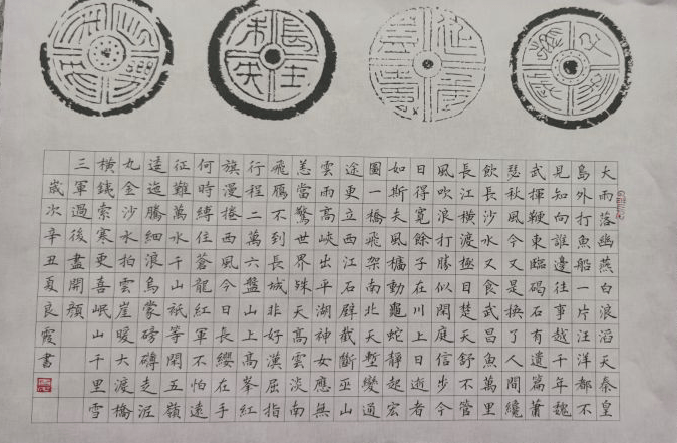 長生未央
大雨落幽燕白浪滔天秦皇
島外打魚船一片汪洋都不
見知向誰邊往事越千年魏
武揮鞭東臨碣石有遺篇蕭
瑟秋風今又是換了人間纔
飲長沙水又食武昌魚萬里
長江橫渡極目楚天舒不管
風吹浪打勝似閑庭信步今
日得寬餘子在川上曰逝者
如斯夫風檣動龜蛇靜起宏
圖一橋飛架南北天塹變通
途更立西江石壁截斷巫山
雲雨高峽出平湖神女應無
恙當驚世界殊天高雲淡南
飛雁不到長城非好漢屈指
行程二萬六盤山上高峯紅
旗漫捲西風今日長纓在手
何時縛住蒼龍紅軍不怕遠
征難萬水千山祇等閑五嶺
逶迤騰細浪烏蒙磅礴走泥
丸金沙水拍雲崖暖大渡橋
橫鐵索寒更喜岷山千里雪
三軍過後盡開顏
歲次辛丑夏良霞書